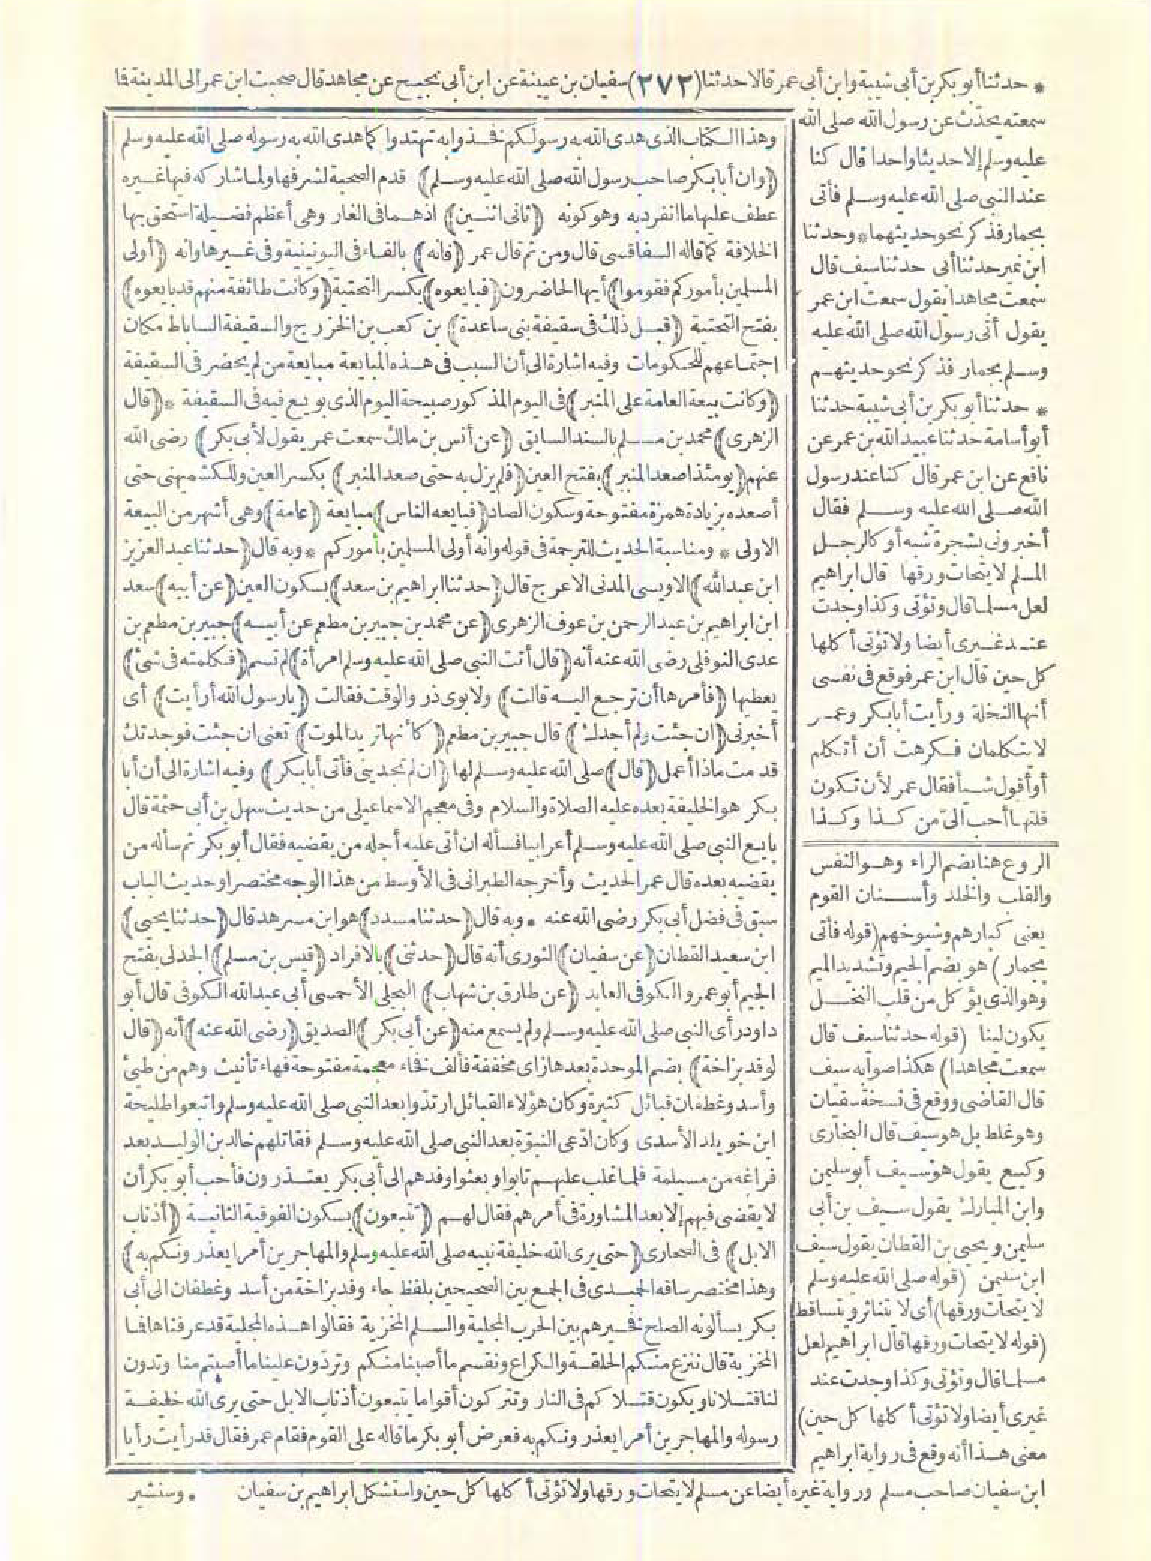 * حدثنا أبو بكر بن أبى شيبة وابن أبى عمر قالا حدثنا (٢٧٣) سفيان بن عيينة عن ابن أبى نجيح عن مجاهد قال صحبت ابن عمر الى المدينة فا
سمعته يحدّث عن رسول الله صلى الله
عليه وسلم إلا حديثا واحدا قال كنا
عند النبى صلى الله عليه وسلم فأتى
بجمار فذكر نحو حديثهما * وحدثنا
ابن نمير حدثنا أبى حدثنا سيف قال
سمعت مجاهدا يقول سمعت ابن عمر
يقول أتى رسول الله صلى الله عليه
وسلم بجمار فذكر نحو حديثهم
* حدثنا أبو بكر بن أبى شيبة حدثنا
أبو أسامة حدثنا عبيد الله بن عمر عن
نافع عن ابن عمر قال كنا عند رسول
الله صلى الله عليه وسلم فقال
أخبرونى بشجرة شبه أو كالرجل
المسلم لا يتحات ورقها قال ابراهيم
لعل مسلما قال وتؤتى وكذا وجدت
عند غيرى أيضا ولا تؤتى أكلها
كل حين قال ابن عمر فوقع فى نفسى
أنها النخلة ورأيت أبا بكر وعمر
لا يتكلمان فكرهت أن أتكلم
أو أقول شيأ فقال عمر لأن تكون
قلتها أحب الىّ من كذا وكذا
الروع هنا بضم الراء وهو النفس
والقلب والخلد وأسنان القوم
يعنى كبارهم وشيوخهم (قوله فأتى
بجمار) هو بضم الجيم وتشديد الميم
وهو الذى يؤكل من قلب النخل
يكون لينا (قوله حدثنا سيف قال
سمعت مجاهدا) هكذا صوابه سيف
قال القاضى ووقع فى نسخة سفيان
وهو غلط بل هو سيف قال البخارى
وكيع يقول هو سيف أبو سليمن
وابن المبارك يقول سيف بن أبى
سليمن ويحيى بن القطان يقول سيف
ابن سليمن (قوله صلى الله عليه وسلم
لا يتحات ورقها) أى لا يتناثر ويتساقط
(قوله لا يتحات ورقها قال ابراهيم لعل
مسلما قال وتؤتى وكذا وجدت عند
غيرى أيضا ولا تؤتى أكلها كل حين)
معنى هذا أنه وقع فى رواية ابراهيم
ابن سفيان صاحب مسلم ورواية غيره أيضا عن مسلم لا يتحات ورقها ولا تؤتى أكلها كل حين واستشكل ابراهيم بن سفيان
وهذا الكتاب الذى هدى الله به رسولكم فخذوا به تهتدوا كما هدى الله به رسوله صلى الله عليه وسلم
(وان أبا بكر صاحب رسول الله صلى الله عليه وسلم) قدم الصحبة لشرفها ولما شاركه فيها غيره
عطف عليها ما انفرد به وهو كونه (ثانى اثنين) اذ هما فى الغار وهى أعظم فضيلة استحق بها
الخلافة كما قاله السفاقسى قال ومن ثم قال عمر (فانه) بالفاء فى اليونينية وفى غيرها وانه (أولى
المسلمين بأموركم فقوموا) أيها الحاضرون (فبايعوه) بكسر التحتية (وكانت طائفة منهم قد بايعوه)
بفتح التحتية (قبل ذلك فى سقيفة بنى ساعدة) بن كعب بن الخزرج والسقيفة الساباط مكان
اجتماعهم للحكومات وفيه اشارة الى أن السبب فى هذه المبايعة مبايعة من لم يحضر فى السقيفة
(وكانت بيعة العامة على المنبر) فى اليوم المذكور صبيحة اليوم الذى بويع فيه فى السقيفة * (قال
الزهرى) محمد بن مسلم بالسند السابق (عن أنس بن مالك سمعت عمر يقول لأبى بكر) رضى الله
عنهم (يومئذ اصعد المنبر) بفتح العين (فلم يزل به حتى صعد المنبر) بكسر العين وللكشميهنى حتى
أصعده بزيادة همزة مفتوحة وسكون الصاد (فبايعه الناس) مبايعة (عامة) وهى أشهر من البيعة
الاولى * ومناسبة الحديث للترجمة فى قوله وانه أولى المسلمين بأموركم * وبه قال (حدثنا عبد العزيز
ابن عبد الله) الاويسى المدنى الاعرج قال (حدثنا ابراهيم بن سعد) بسكون العين (عن أبيه) سعد
ابن ابراهيم بن عبد الرحمن بن عوف الزهرى (عن محمد بن جبير بن مطعم عن أبيه) جبير بن مطعم بن
عدى النوفلى رضى الله عنه أنه (قال أتت النبى صلى الله عليه وسلم امرأة) لم تسم (فكلمته فى شئ)
يعطيها (فأمرها أن ترجع اليه قالت) ولابوى ذر والوقت فقالت (يارسول الله أرأيت) أى
أخبرنى (ان جئت ولم أجدك) قال جبير بن مطعم (كأنها تريد الموت) تعنى ان جئت فوجدتك
قد مت ماذا أعمل (قال) صلى الله عليه وسلم لها (ان لم تجدينى فأتى أبا بكر) وفيه اشارة الى أن أبا
بكر هو الخليفة بعده عليه الصلاة والسلام وفى معجم الاسماعيلى من حديث سهل بن أبى حثمة قال
بايع النبى صلى الله عليه وسلم أعرابيا فسأله ان أتى عليه أجله من يقضيه فقال أبو بكر ثم سأله من
يقضيه بعده قال عمر الحديث وأخرجه الطبرانى فى الأوسط من هذا الوجه مختصرا وحديث الباب
سبق فى فضل أبى بكر رضى الله عنه * وبه قال (حدثنا مسدد) هو ابن مسرهد قال (حدثنا يحيى)
ابن سعيد القطان (عن سفيان) الثورى أنه قال (حدثنى) بالافراد (قيس بن مسلم) الجدلى بفتح
الجيم أبو عمرو الكوفى العابد (عن طارق بن شهاب) البجلى الأحمسى أبى عبد الله الكوفى قال أبو
داود رأى النبى صلى الله عليه وسلم ولم يسمع منه (عن أبى بكر) الصديق (رضى الله عنه) أنه (قال
لوفد بزاخة) بضم الموحدة بعدها زاى مخففة فألف فخاء معجمة مفتوحة فهاء تأنيث وهم من طيئ
وأسد وغطفان قبائل كثيرة وكان هؤلاء القبائل ارتدوا بعد النبى صلى الله عليه وسلم واتبعوا طليحة
ابن خويلد الأسدى وكان ادّعى النبوّة بعد النبى صلى الله عليه وسلم فقاتلهم خالد بن الوليد بعد
فراغه من مسيلمة فلما غلب عليهم تابوا وبعثوا وفدهم الى أبى بكر يعتذرون فأحب أبو بكر أن
لا يقضى فيهم إلا بعد المشاورة فى أمرهم فقال لهم (تتبعون) بسكون الفوقية الثانية (أذناب
الابل) فى الصحارى (حتى يرى الله خليفة نبيه صلى الله عليه وسلم والمهاجرين أمرا يعذرونكم به)
وهذا مختصر ساقه الحميدى فى الجمع بين الصحيحين بلفظ جاء وفد بزاخة من أسد وغطفان الى أبى
بكر يسألونه الصلح فخيرهم بين الحرب المجلية والسلم المخزية فقالوا هذه المجلية قد عرفناها فا
المخزية قال ننزع منكم الحلقة والكراع ونقسم ما أصبنا منكم وتردّون علينا ما أصبتم منا وتدون
لنا قتلانا ويكون قتلاكم فى النار وتتركون أقواما يتبعون أذناب الابل حتى يرى الله خليفة
رسوله والمهاجرين أمرا يعذرونكم به فعرض أبو بكر ما قاله على القوم فقام عمر فقال قد رأيت رأيا
* وسنشير